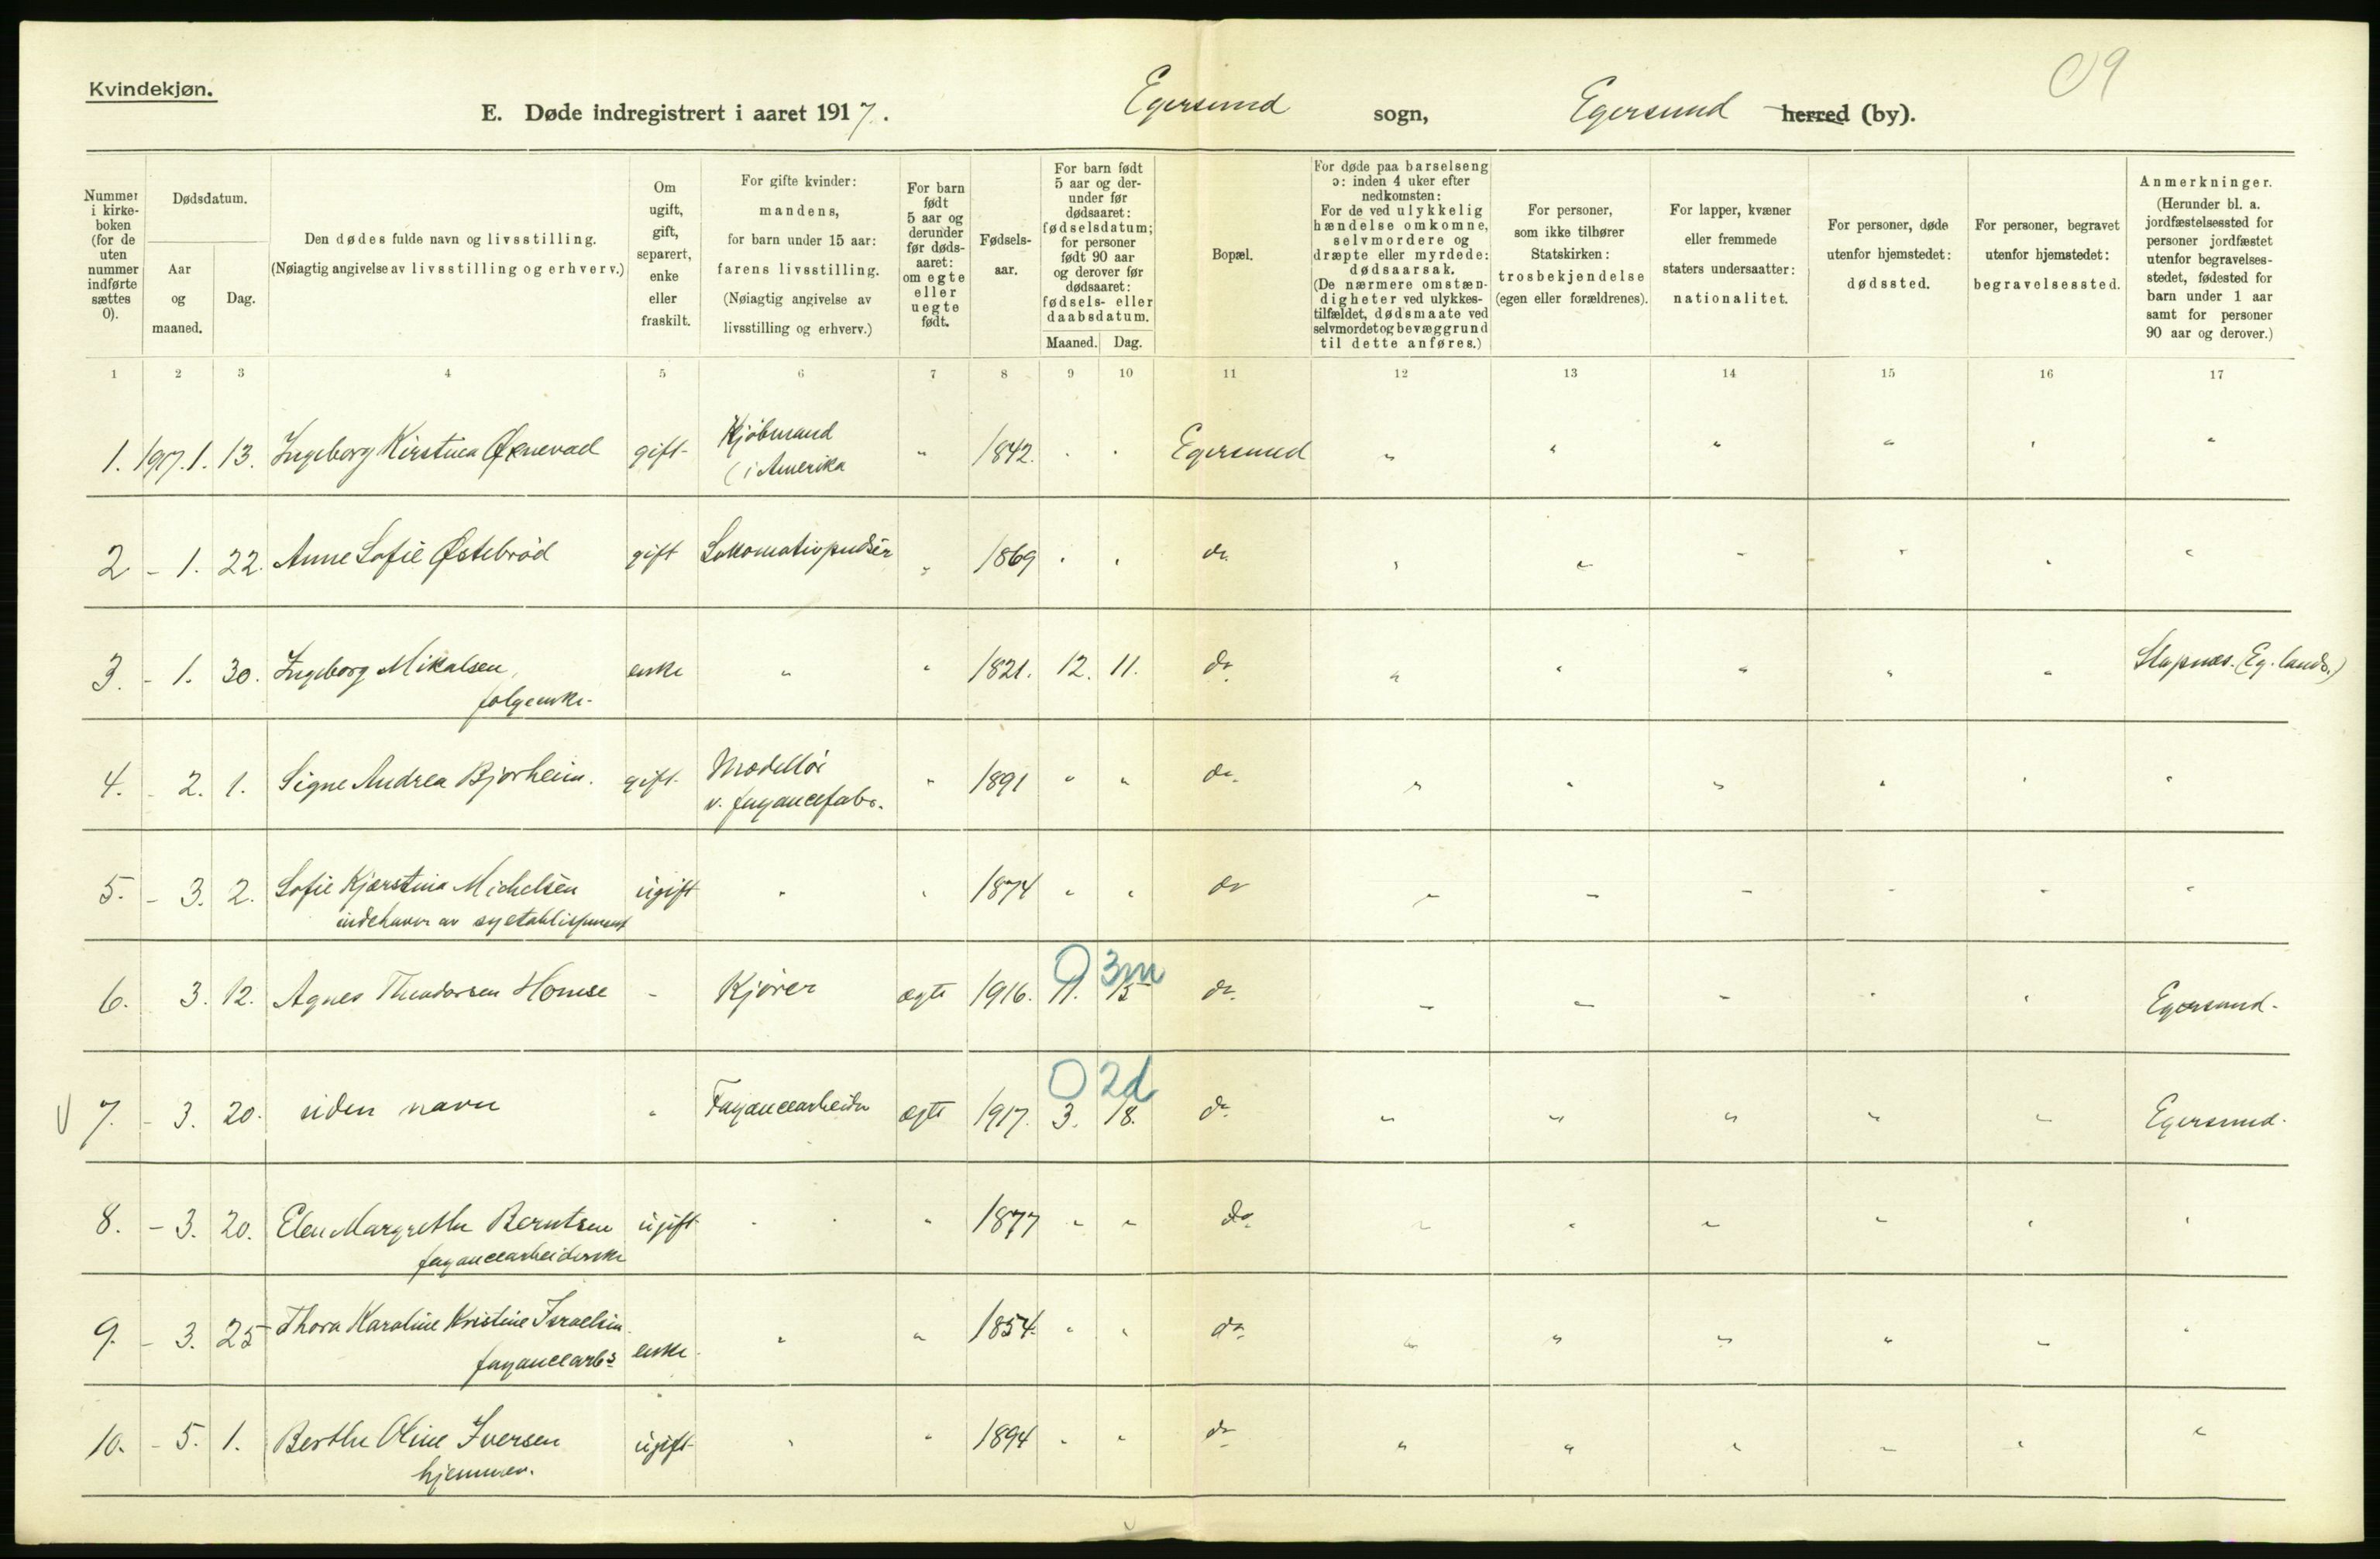 Kvindekjøn.
E. Døde indregistrert i aaret 1917. Egersund sogn, Egersund herred (by).
Nummer i kirkeboken (for de uten nummer indførte sættes 0).
Dødsdatum.
Aar og maaned.
Dag.
Den dødes fulde navn og livsstilling.
(Nøiagtig angivelse av livsstilling og erhverv.)
Om ugift, gift, separert, enke eller fraskilt.
For gifte kvinder: mandens, for barn under 15 aar: farens livsstilling.
(Nøiagtig angivelse av livsstilling og erhverv.)
For barn født 5 aar og derunder før dødsaaret: om egte eller uegte født.
Fødselsaar.
For barn født 5 aar og derunder før dødsaaret: fødselsdatum; for personer født 90 aar og derover før dødsaaret: fødsels- eller daabsdatum.
Maaned. Dag.
Bopæl.
For døde paa barselseng ɔ: inden 4 uker efter nedkomsten:
For de ved ulykkelig hændelse omkomne, selvmordere og dræpte eller myrdede: dødsaarsak.
(De nærmere omstændigheter ved ulykkestilfældet, dødsmaate ved selvmordet og bevæggrund til dette anføres.)
For personer, som ikke tilhører Statskirken: trosbekjendelse (egen eller forældrenes).
For lapper, kvæner eller fremmede staters undersaatter: nationalitet.
For personer, døde utenfor hjemstedet: dødssted.
For personer, begravet utenfor hjemstedet: begravelsessted.
Anmerkninger.
(Herunder bl. a. jordfæstelsessted for personer jordfæstet utenfor begravelsesstedet, fødested for barn under 1 aar samt for personer 90 aar og derover.)
1 2 3 4 5 6 7 8 9 10 11 12 13 14 15 16 17
1. 1917.1. 13. Ingeborg Kirstina Øxnevad gift Kjöbmand (i Amerika " 1842. " " Egersund " " " " " "
2 - 1. 22. Anne Sofie Østebröd gift Lokomotivpudser " 1869 " " do. " " " " " "
3. - 1. 30. Ingeborg Mikalsen, folgeenke. enke " " 1821. 12. 11. do. " " " " " Stapnes. (Eg. lands.)
4. - 2. 1. Signe Andrea Bjorheim. gift. Modellör v. fayancefabr. " 1891 " " do. " " " " " "
5. - 3. 2. Sofie Kjærstina Michelsen indehaver av syetablissement ugift " " 1874 " " do " " " " " "
6. 3. 12. Agnes Theodorsen Homse - Kjörer ægte 1916. 11. 15 0 3m do. " " " " " Egersund.
7. - 3. 20. uden navn " Fayancearbeider ægte 1917. 3. 18. 0 2d do. " " " " " Egersund.
8. - 3. 20. Elen Margrethe Berntsen fayancearbeiderske ugift " " 1877 " " do. " " " " " "
9. - 3. 25 Thora Karoline Kristine Israelsen fayancearbs enke. " " 1854. " " do. " " " " " "
10. - 5. 1. Berthe Oline Iversen hjemmev. ugift " " 1894 " " do " " " " " "